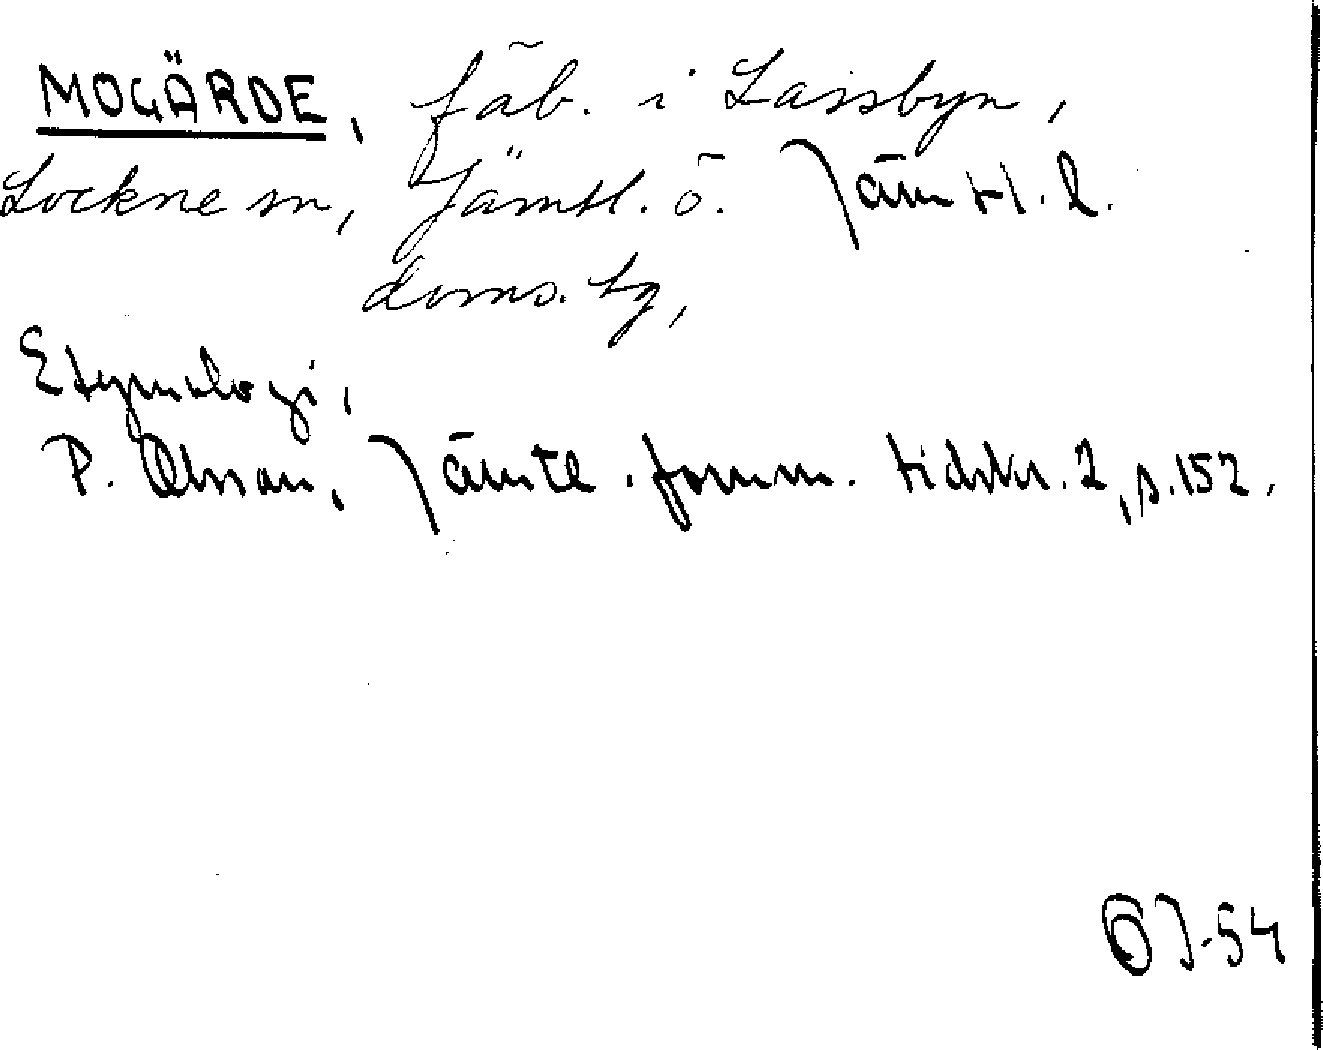 MOGÄRDE, fäb. i Lassbyn,
Lockne sn, Jämtl. ö. Jämtl. l.
doms. tg,
Etymologi,
P. Olsson, Jämtl. fornm. tidskr. 2, s. 152.
ÖJ-54